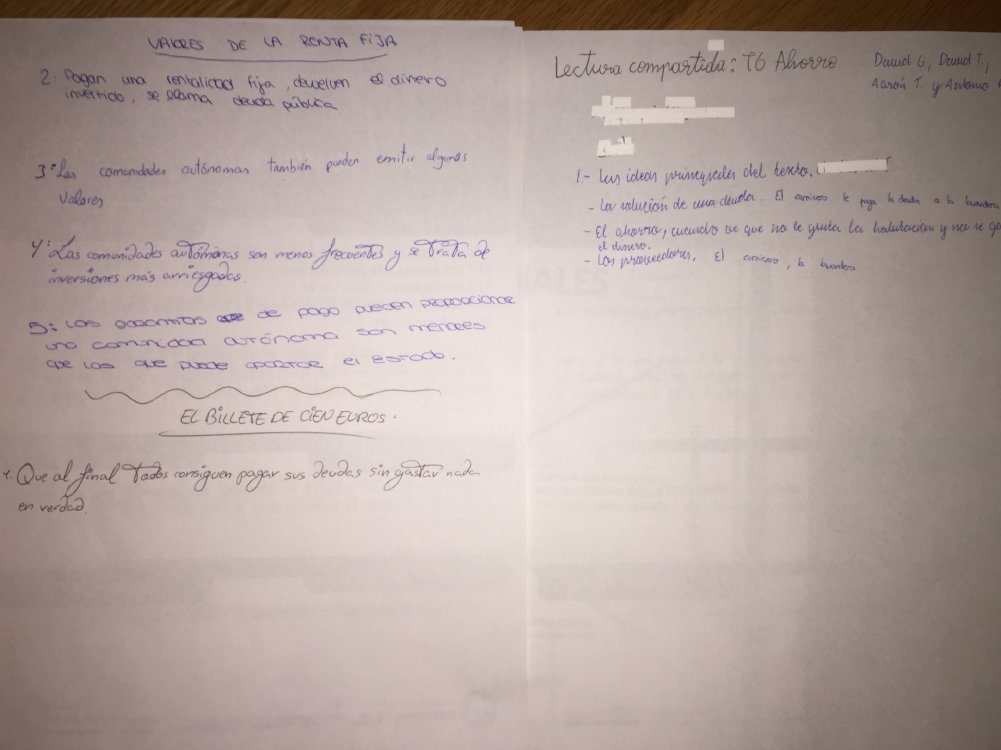 VALORES DE LA RENTA FIJA
2- Pagan una rentalidad fija, devuelven el dinero
invertido, se llama deuda pública
3: Las comunidades autónomas también pueden emitir algunos
valores
4: Las comunidades autónomas son menos frecuentes y se trata de
inversiones más arriesgadas.
5: Las garantías de pago pueden proporcionar
una comunidad autónoma son menores
que las que puede aportar el Estado.
EL BILLETE DE CIEN EUROS.
1. Que al final todos consiguen pagar sus deudas sin gastar nada
en verdad.
Lectura compartida: T6 Ahorro
Daniel G, Daniel T.,
Aarón T. y Antonio
1.- Las ideas principales del texto.
- La solución de una deuda. El carnicero le paga la deuda a la
- El ahorro, cuando ve que no le gusta la habitación y no se
el dinero.
- Los proveedores. El carnicero, la